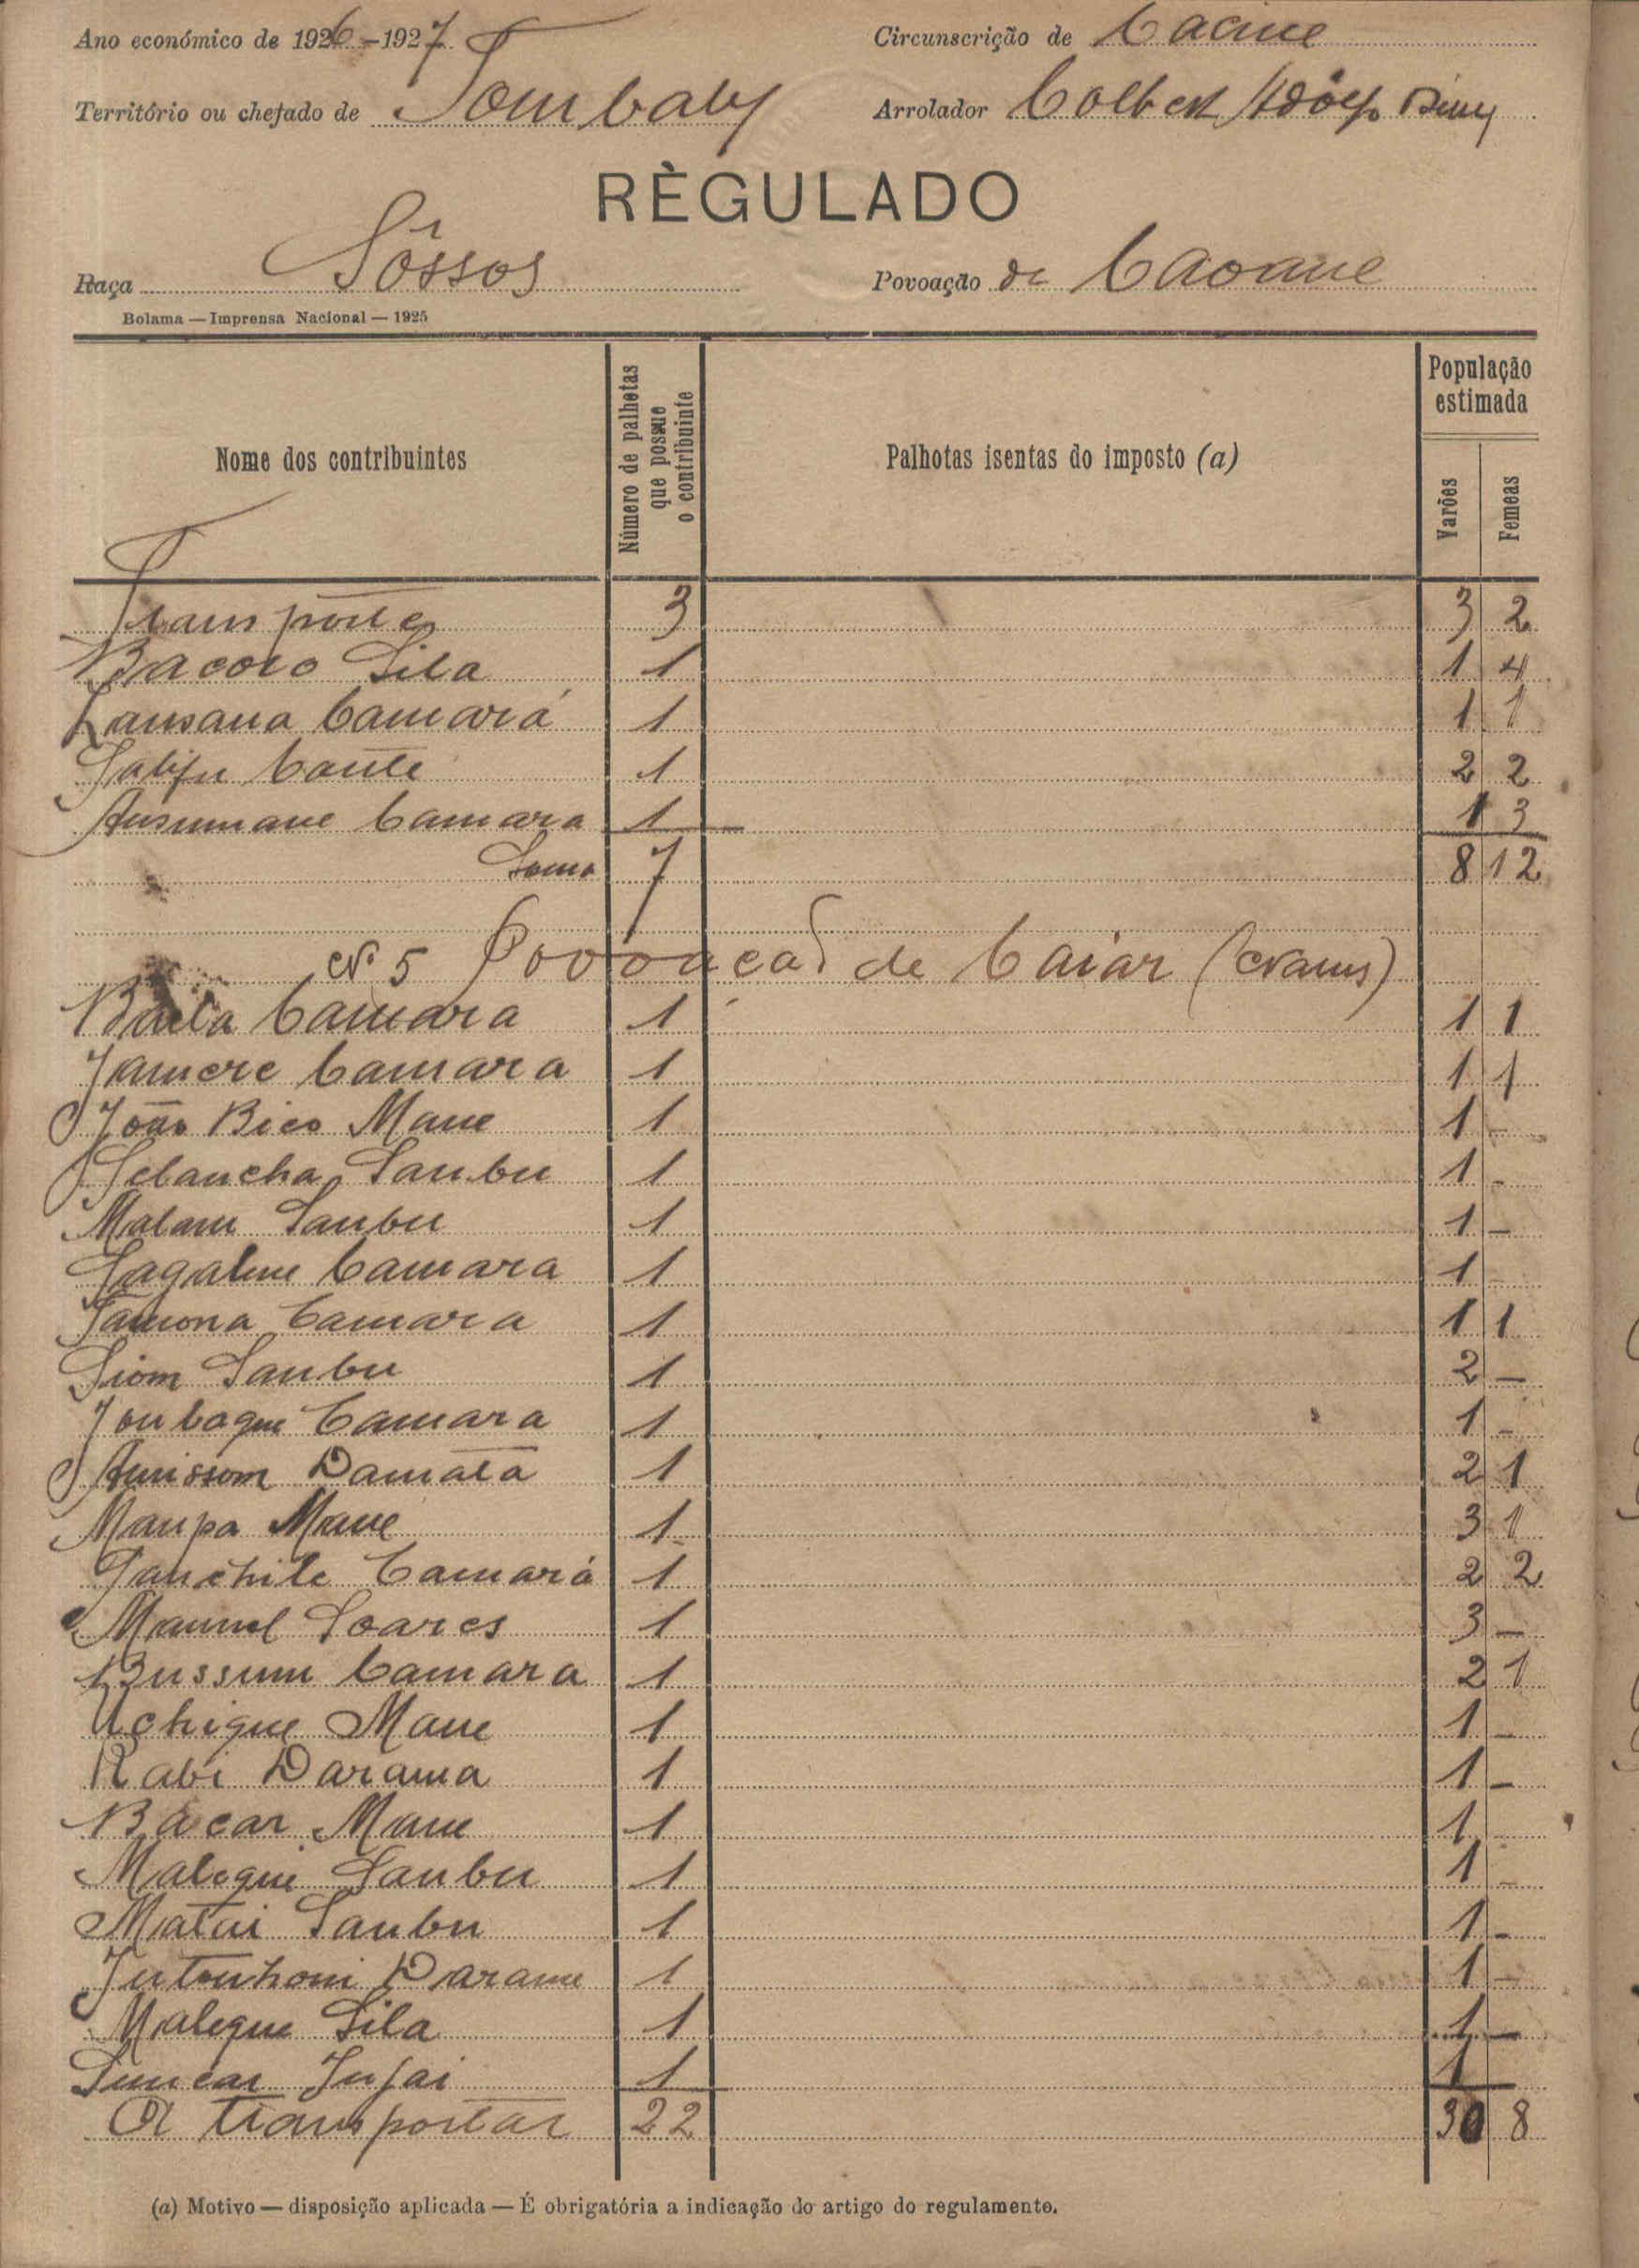 Ano económico de 1926-1927 Circunscrição de Cacine
Território ou chefado de Tombaly Arrolador Colbert Adolfo
RÈGULADO
Raça Sôssos Povoação de Caoane
Bolama — Imprensa Nacional — 1925
Nome dos contribuintes Número de palhetas que possue o contribuinte Palhotas isentas do imposto (a) População estimada Varões Femeas
Transporte 3 3 2
Bacoro Sila 1 1 4
Lansana Camará 1 1 1
Salifu Conté 1 2 2
Ansumane Camara 1 1 3
Soma 7 8 12
Nº 5 Povoação de Caiar (Nalus)
Camara 1 1 1
Jamere Camara 1 1 1
João Bico Mane 1 1 -
Selancha Sambu 1 1 -
Malam Sambu 1 1 -
Camara 1 1 -
Tamona Camara 1 1 1
Siom Sambu 1 2 -
Camara 1 1 -
Damatá 1 2 1
Maupa Mane 1 3 1
Tanchile Camará 1 2 2
Manuel Soares 1 3 -
Bussum Camara 1 2 1
Uchique Mane 1 1 -
Rabi Darama 1 1 -
Bacar Mane 1 1 -
Maleque Sambu 1 1 -
Matui Sambu 1 1 -
Darame 1 1 -
Maleque Sila 1 1 -
Suncar Jufai 1 1
A transportar 22 30 8
(a) Motivo — disposição aplicada — É obrigatória a indicação do artigo do regulamento.